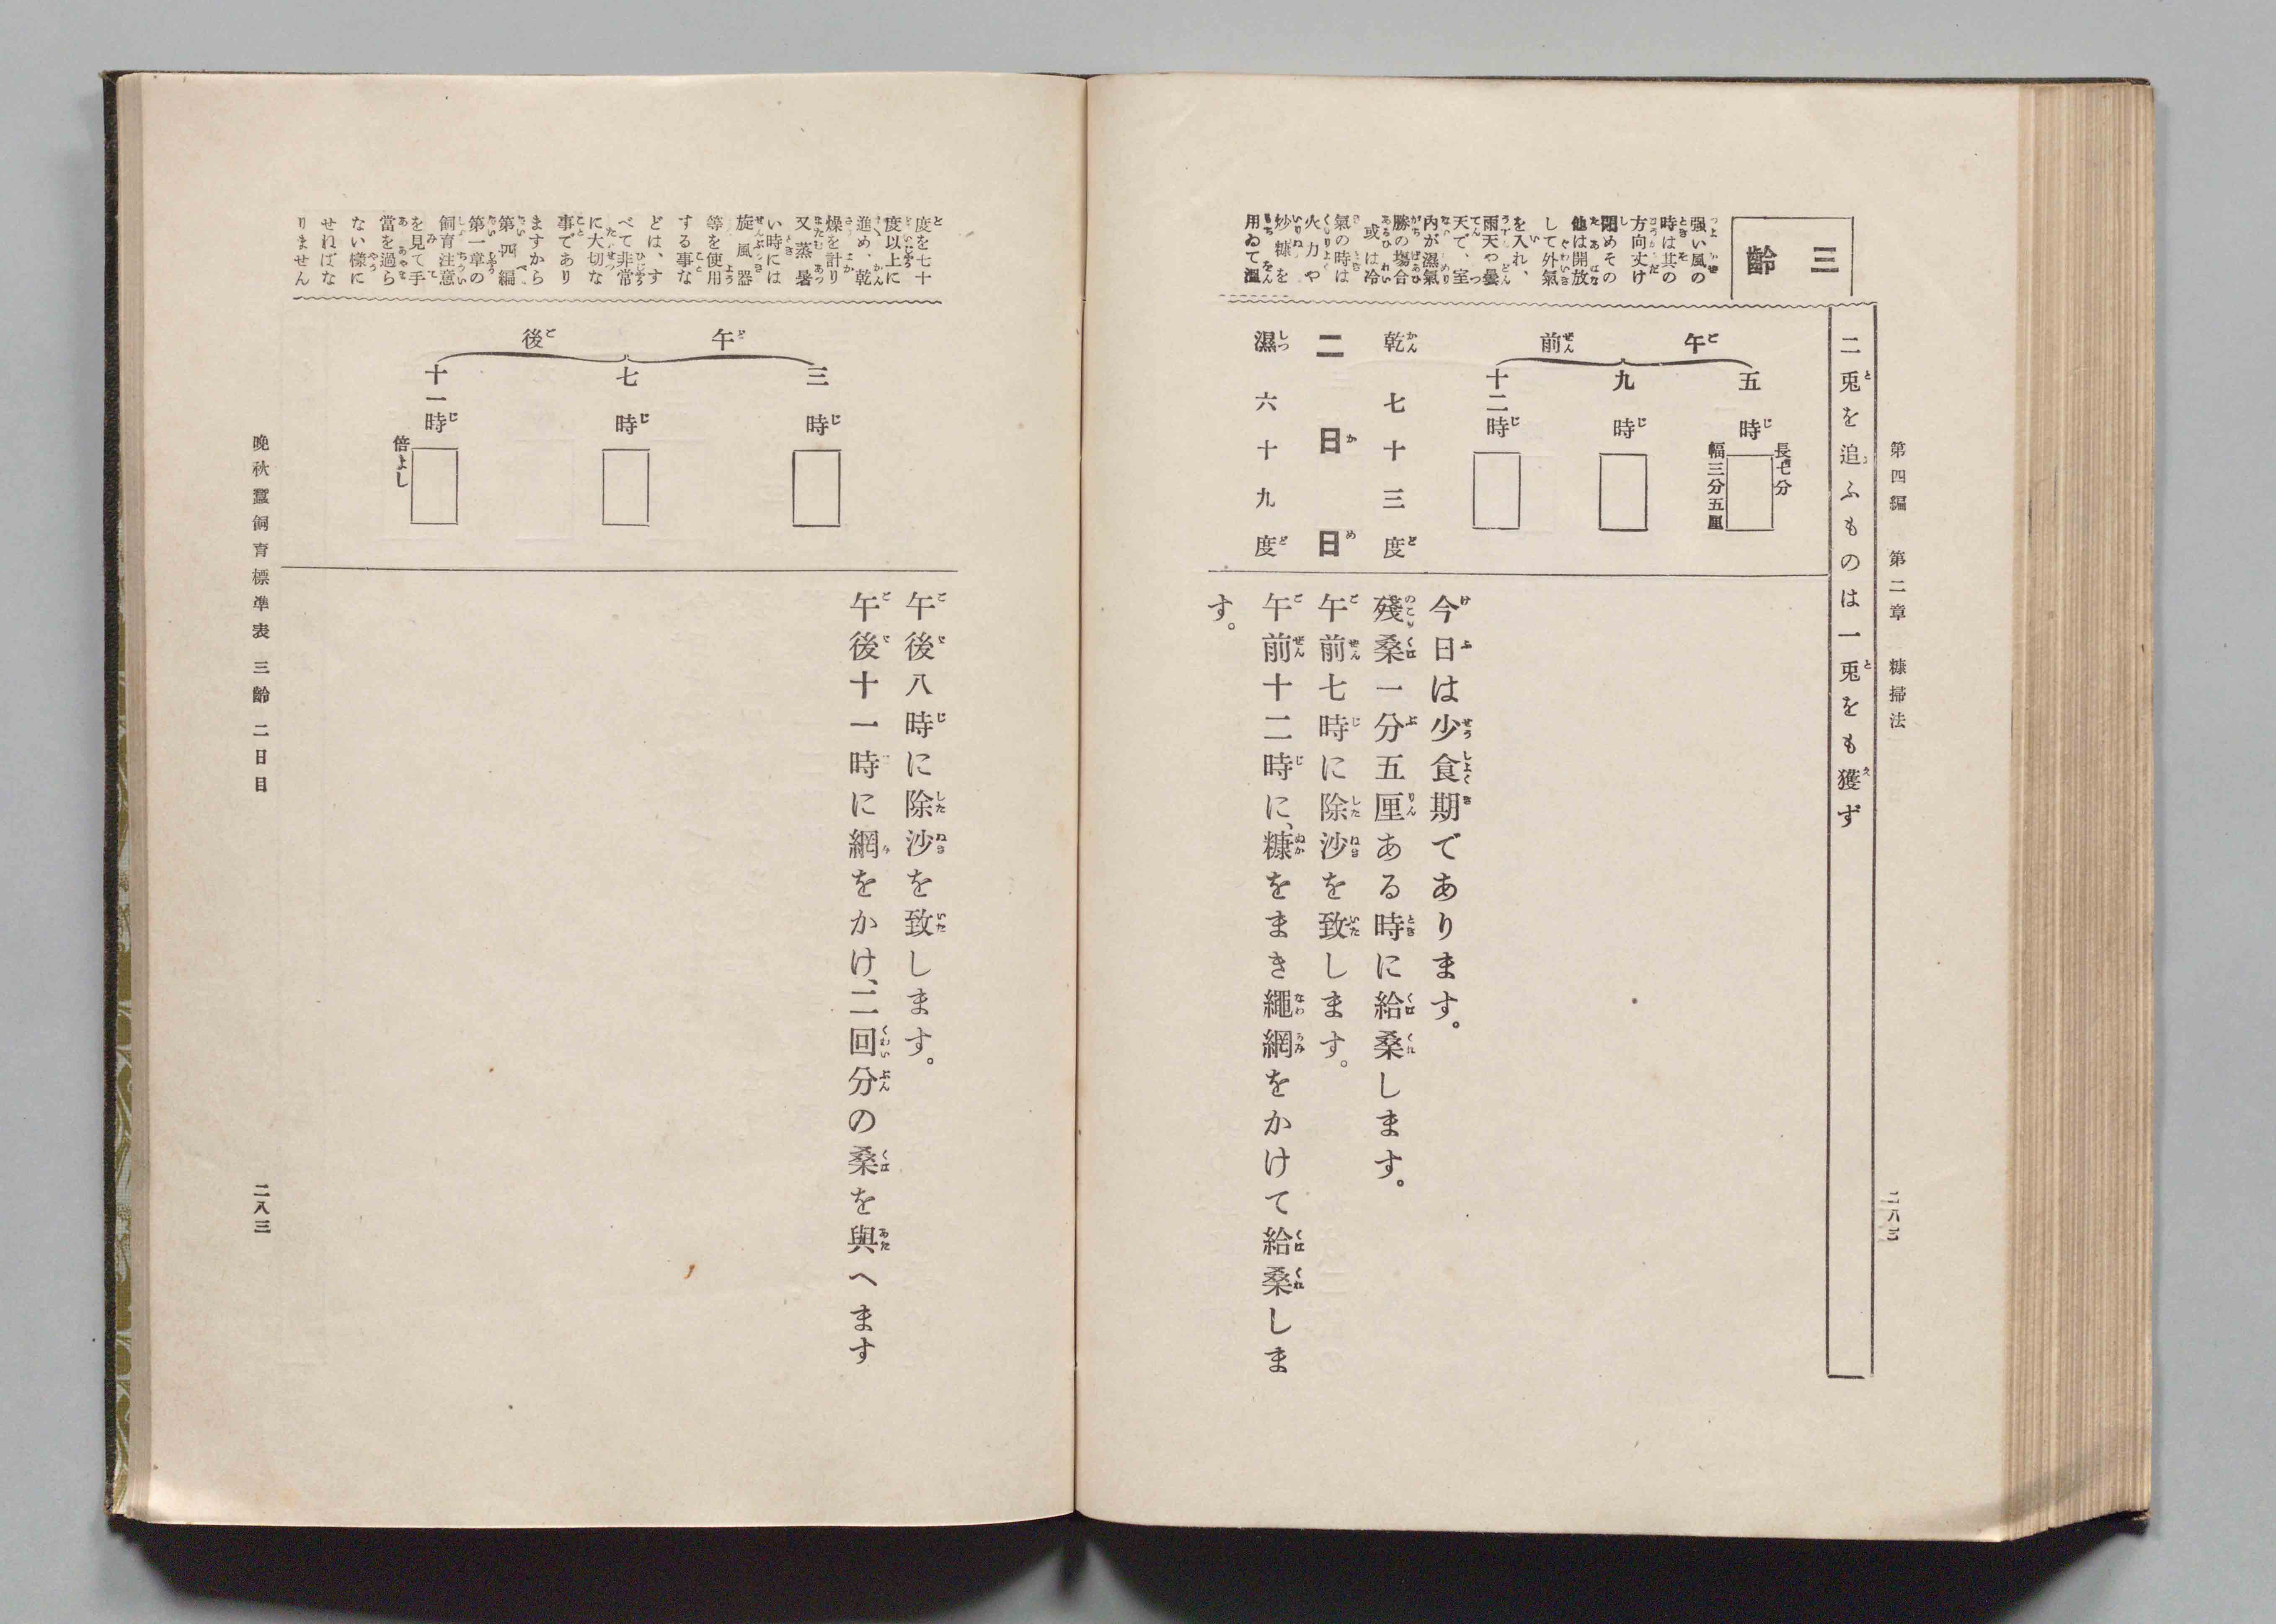 第四編　第二章　糠掃法
二八二
二兎を追ふものは一兎をも獲ず
三齢
强い風の
時は其の
方向丈け
閉めその
他は開放
して外氣
を入れ、
雨天や曇
天で、室
內が濕氣
勝の塲合
或は冷
氣の時は
火力や
炒糠を
用ゐて溫
午前
五時
長七分
幅三分五厘
九時
十二時
乾　七十三度
二日目
濕　六十九度
今日は少食期であります。
殘桑一分五厘ある時に給桑します。
午前七時に除沙を致します。
午前十二時に、糠をまき繩網をかけて給桑しま
す。
度を七十
度以上に
進め、乾
燥を計り
又蒸暑
い時には
旋風器
等を使用
する事な
どは、す
べて非常
に大切な
事であり
ますから
第四編
第一章の
飼育注意
を見て手
當を過ら
ない樣に
せねばな
りません
午後
三時
七時
十一時
倍よし
午後八時に除沙を致します。
午後十一時に網をかけ、二回分の桑を與へます
晚秋蠶飼育標準表　三齡　二日目
二八三